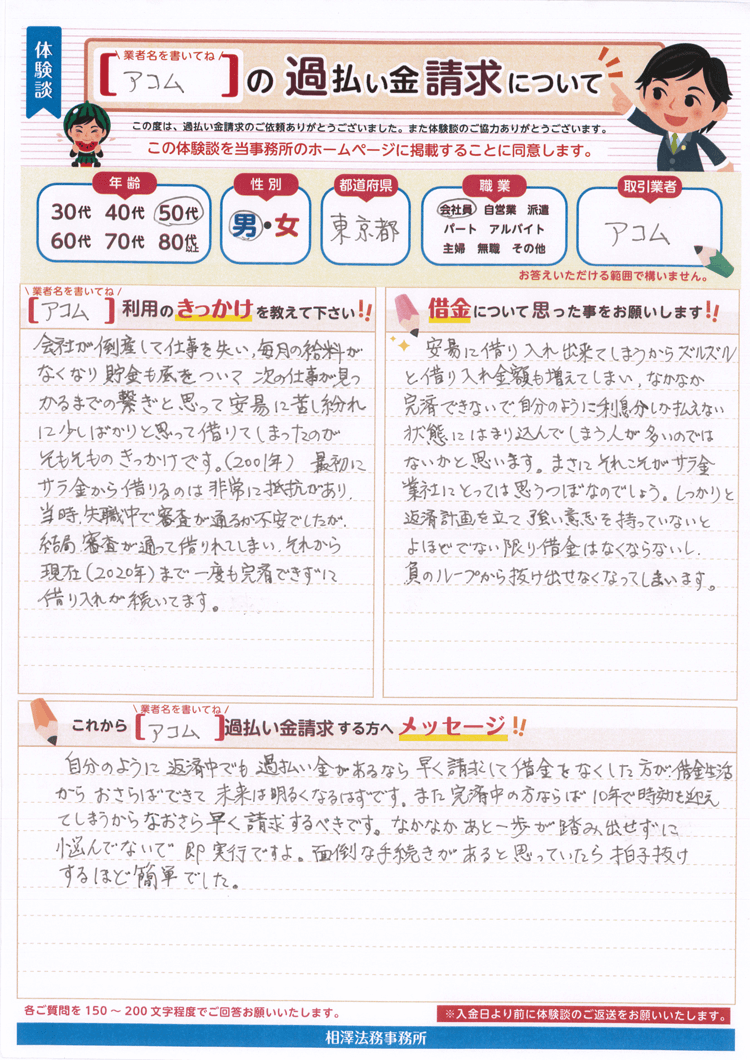 体験談
\ 業者名を書いてね /
[アコム]の過払い金請求について
この度は、過払い金請求のご依頼ありがとうございました。また体験談のご協力ありがとうございます。
この体験談を当事務所のホームページに掲載することに同意します。
年齢
30代 40代 50代
60代 70代 80代以上
性別
男・女
都道府県
東京都
職業
会社員 自営業 派遣
パート アルバイト
主婦 無職 その他
取引業者
アコム
お答えいただける範囲で構いません。
\ 業者名を書いてね /
[アコム]利用のきっかけを教えて下さい!!
会社が倒産して仕事を失い,毎月の給料が
なくなり貯金も底をついて 次の仕事が見つ
かるまでの繋ぎと思って安易に苦し紛れ
に少しばかりと思って借りてしまったのが
そもそものきっかけです。(2001年) 最初に
サラ金から借りるのは非常に抵抗があり,
当時,失職中で審査が通るか不安でしたが,
結局 審査が通って借りれてしまい,それから
現在(2020年)まで一度も完済できずに
借り入れが続いてます。
借金について思った事をお願いします!!
安易に借り入れ出来てしまうからズルズル
と借り入れ金額も増えてしまい,なかなか
完済できないで,自分のように利息分しか払えない
状態にはまり込んでしまう人が多いのでは
ないかと思います。まさにそれこそがサラ金
業社にとっては思うつぼなのでしょう。しっかりと
返済計画を立て 強い意志を持っていないと
よほどでない限り借金はなくならないし,
負のループから抜け出せなくなってしまいます。
\ 業者名を書いてね /
これから[アコム]過払い金請求する方へメッセージ!!
自分のように返済中でも過払い金があるなら早く請求して借金をなくした方が,借金生活
からおさらばできて未来は明るくなるはずです。また完済中の方ならば10年で時効を迎え
てしまうからなおさら早く請求するべきです。なかなかあと一歩が踏み出せずに
悩んでないで 即実行ですよ。面倒な手続きがあると思っていたら拍子抜け
するほど簡単でした。
各ご質問を150〜200文字程度でご回答お願いいたします。
※入金日より前に体験談のご返送をお願いいたします。
相澤法務事務所